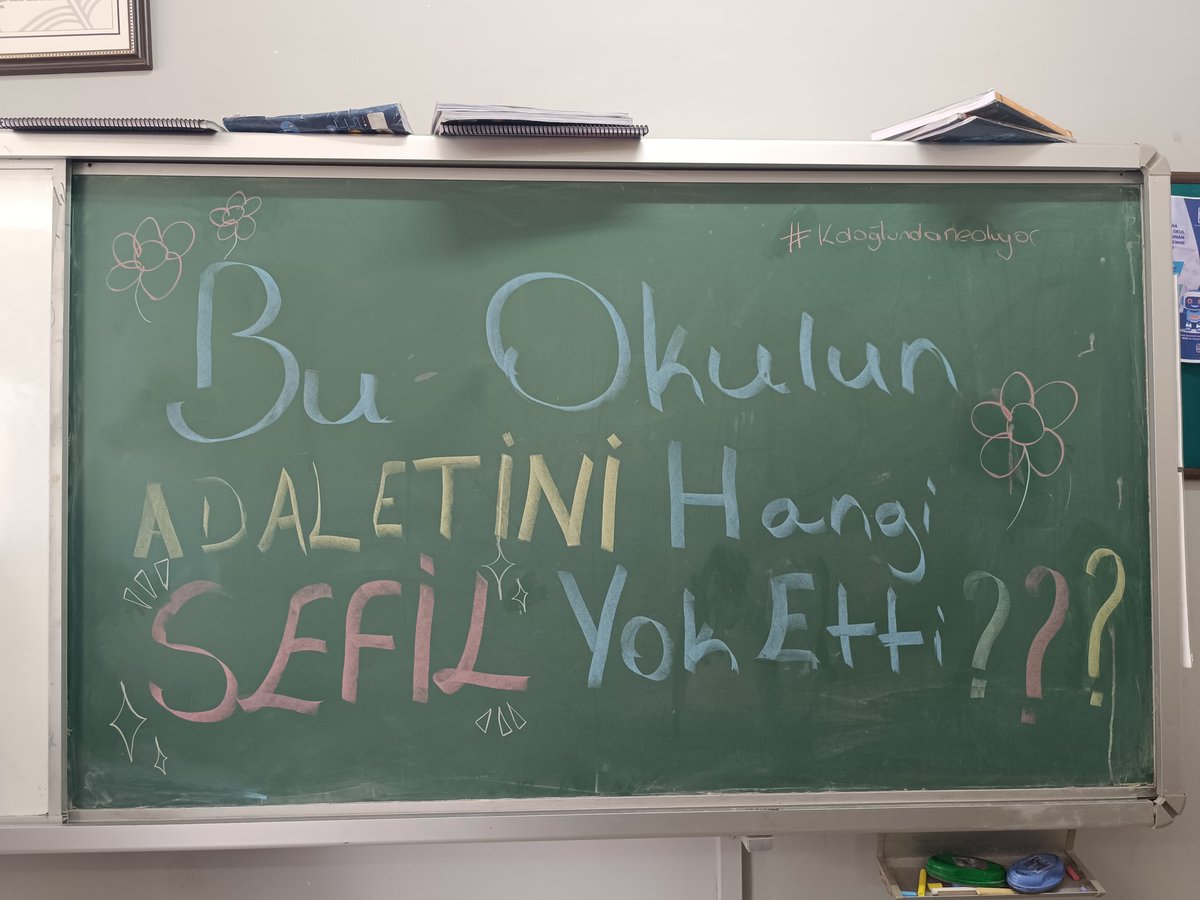 #Kdoğlundaneoluyor
Bu Okulun
ADALETİNİ Hangi
SEFİL Yok Etti ???